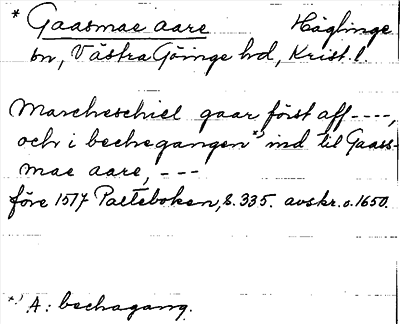 * Gaasmae aare Häglinge
sn, Västra Göinge hd, Krist. l.
Marcheschiel gaar först aff ----,
och i bechegangen *) ind til Gaass-
mae aare, ---
före 1517 Palteboken, s. 335. avskr. o. 1650.
*) A: bechagang.